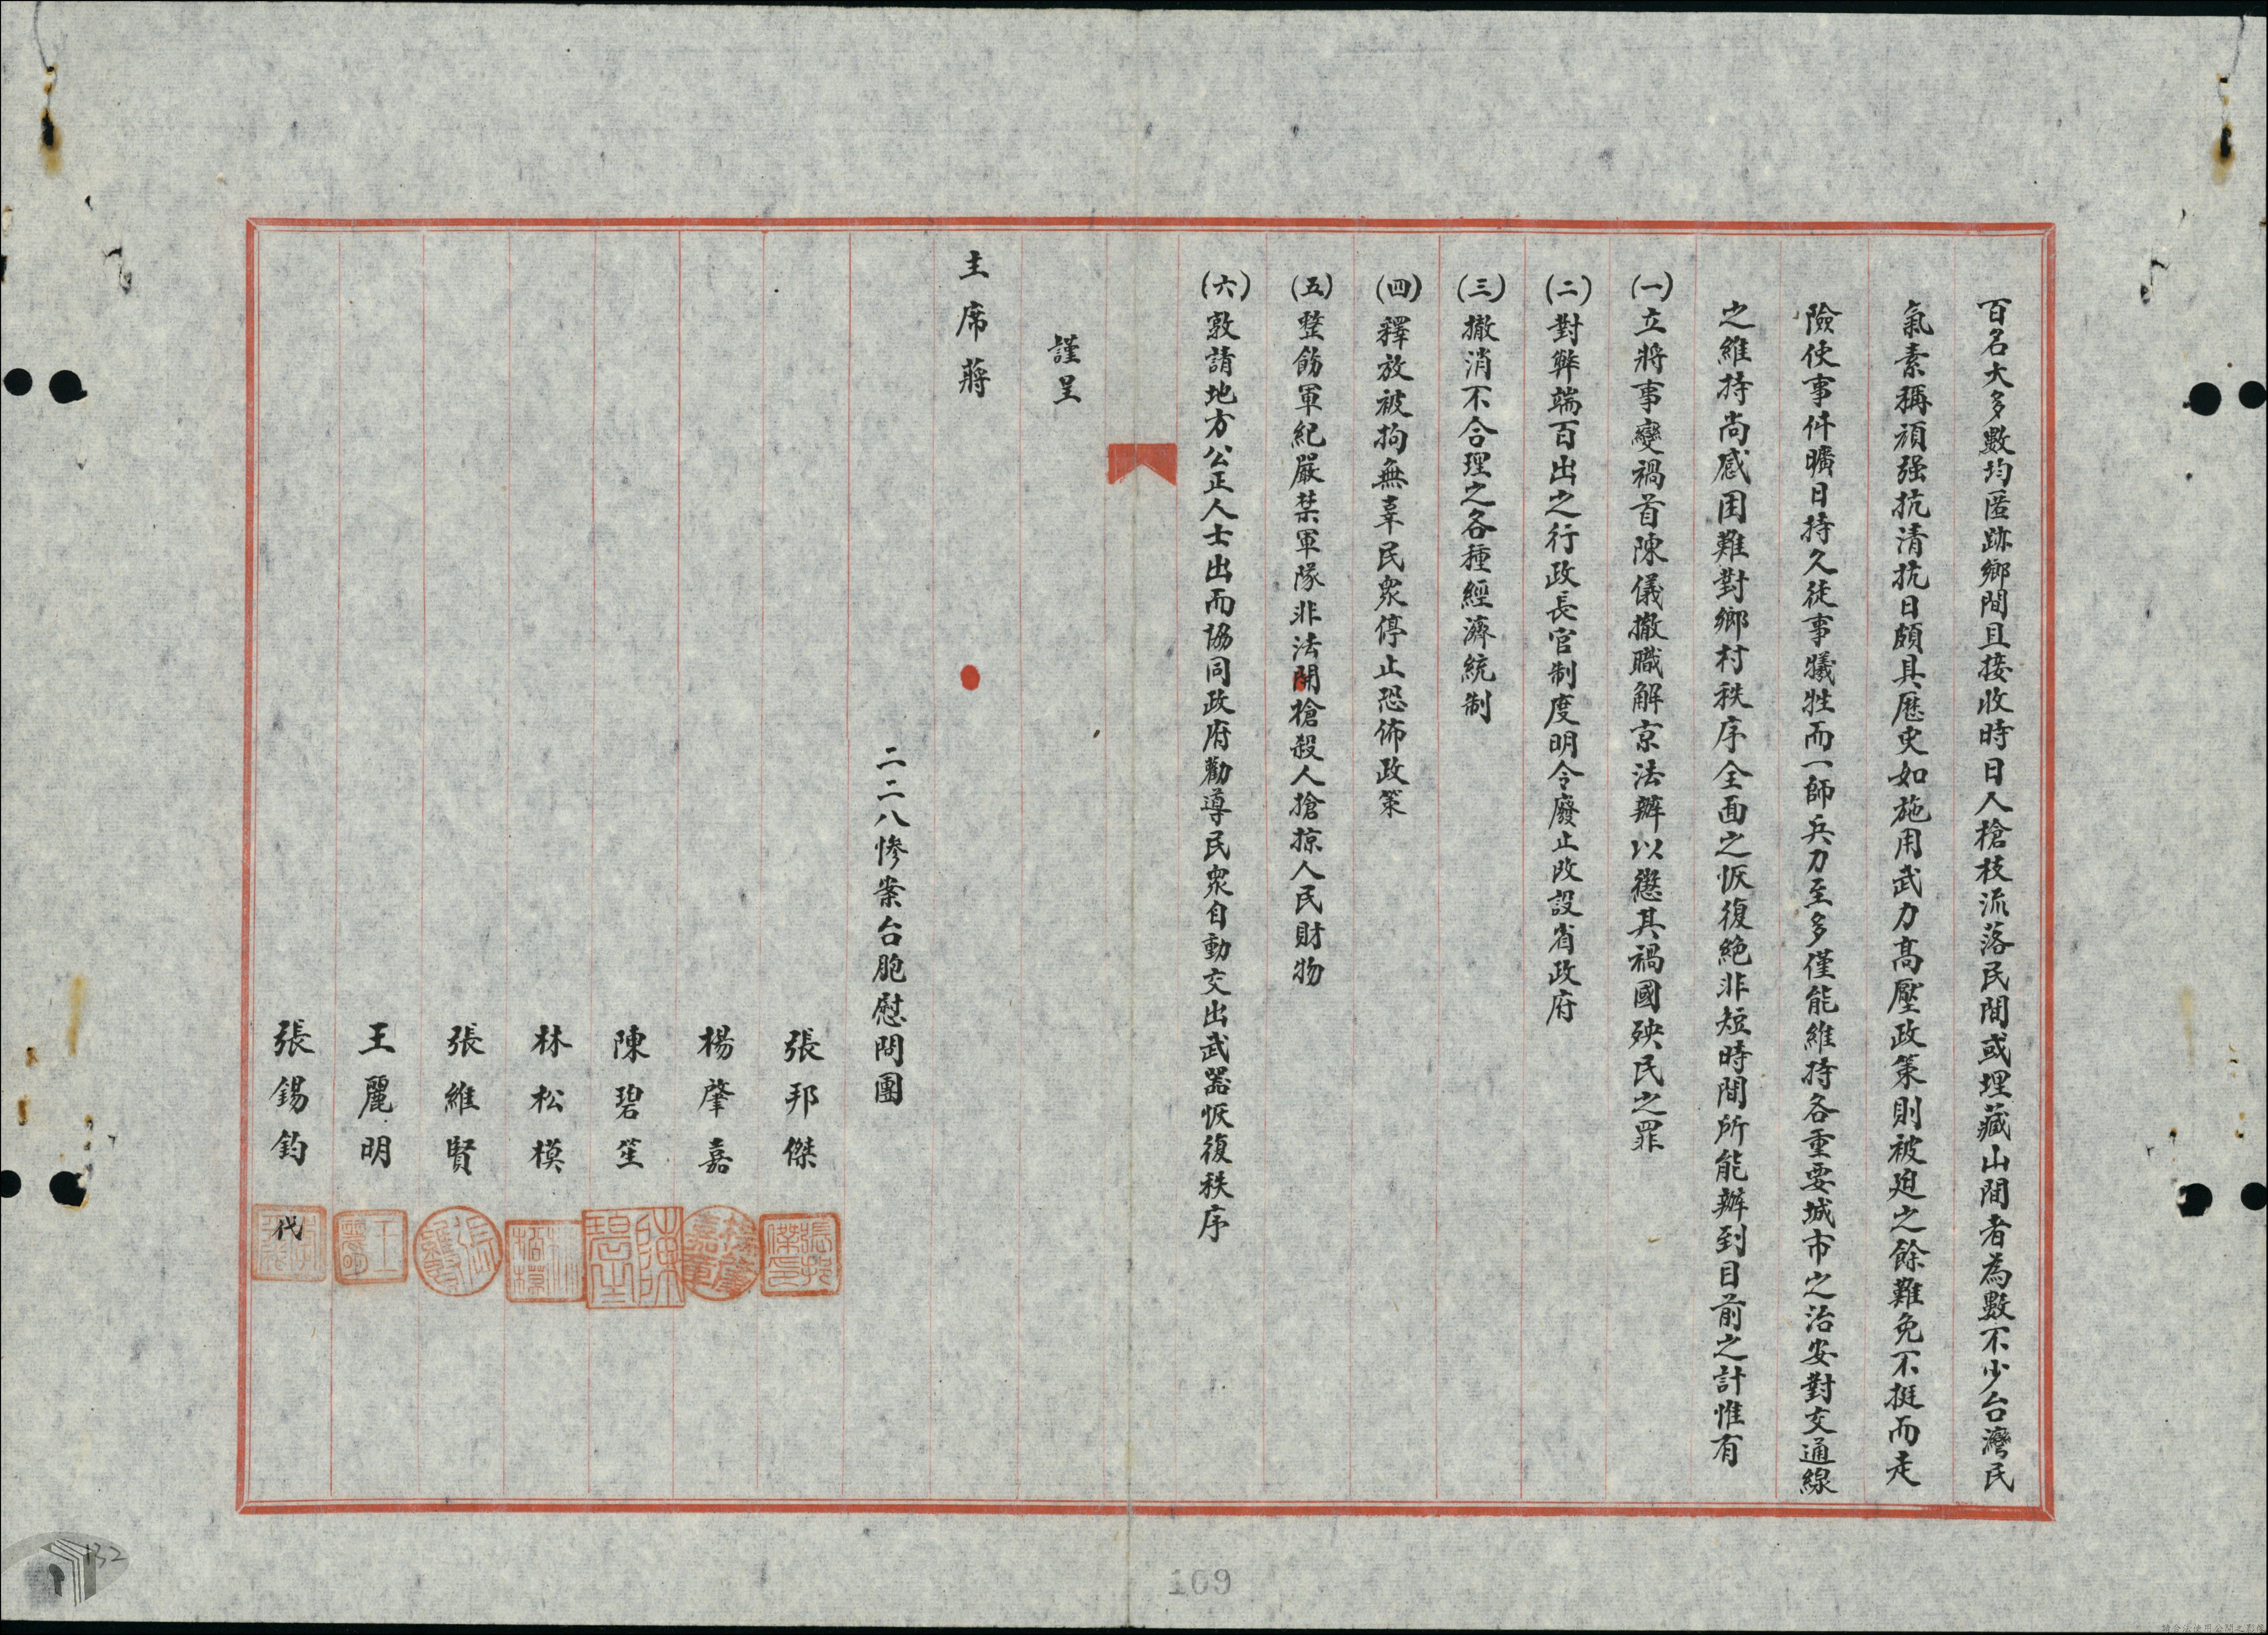 百名大多數均匿跡鄉間且接收時日人槍枝流落民間或埋藏山間者為數不少台灣民
氣素稱頑强抗清抗日頗具歷史如施用武力高壓政策則被迫之餘難免不挺而走
險使事件曠日持久徒事犧牲而一師兵力至多僅能維持各重要城市之治安對交通線
之維持尚感困難對鄉村秩序全面之恢復絶非短時間所能辦到目前之計惟有
(一)立將事變禍首陳儀撤職解京法辦以懲其禍國殃民之罪
(二)對弊端百出之行政長官制度明令廢止改設省政府
(三)撤消不合理之各種經濟統制
(四)釋放被拘無辜民衆停止恐佈政策
(五)整飭軍紀嚴禁軍隊非法開槍殺人搶掠人民財物
(六)敦請地方公正人士出而協同政府勸導民衆自動交出武器恢復秩序
謹呈
主席蔣
二二八慘案台胞慰問團
張邦傑
楊肇嘉
陳碧笙
林松模
張維賢
王麗明
張錫鈞 代
109
132